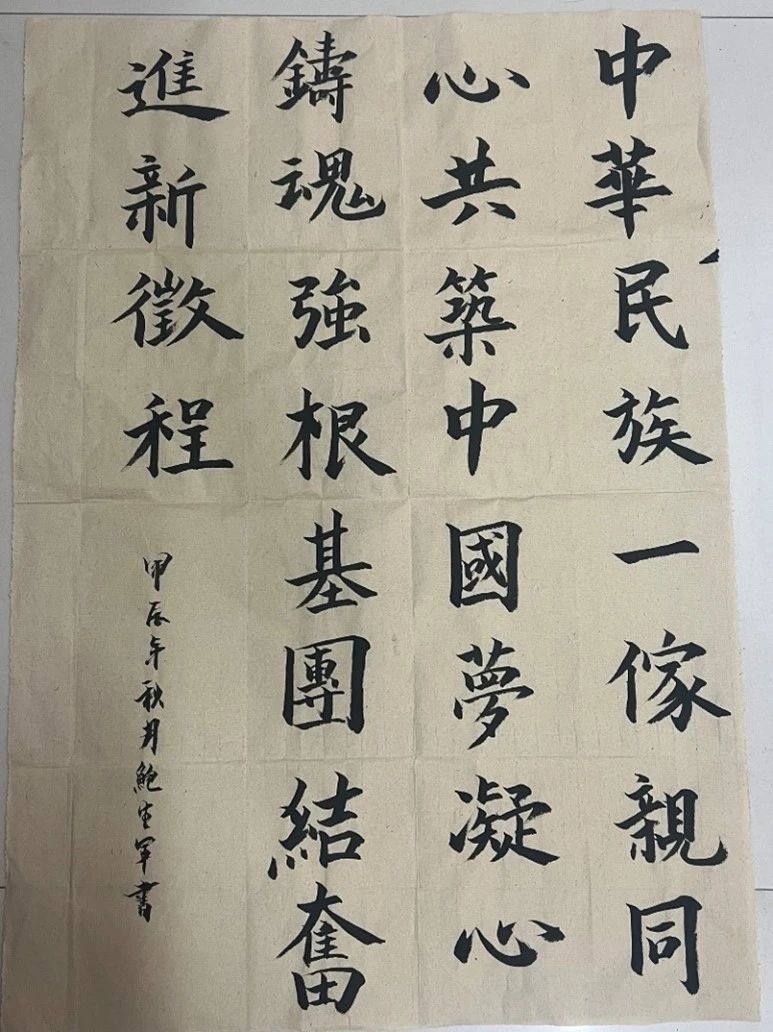 中華民族一傢親同
心共築中國夢凝心
鑄魂強根基團結奮
進新徵程
甲辰年秋月鮑生軍書